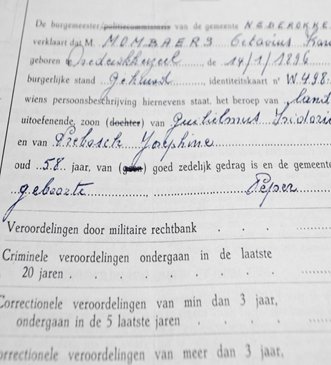 De burgemeester/politiecommissaris van de gemeente NEDEROKKE
verklaart dat M. MOMBAERS Octavius Kar
geboren de 14/1/1896
burgerlijke stand Gehuwd, identiteitskaart n° W.498
wiens persoonsbeschrijving hiernevens staat, het beroep van land
uitoefenende, zoon (dochter) van Guilielmus Isidorie
en van Josephine
oud 58 jaar, van goed zedelijk gedrag is en de gemeente
geboorte Peper
Veroordelingen door militaire rechtbank
Criminele veroordelingen ondergaan in de laatste
20 jaren
Correctionele veroordelingen van min dan 3 jaar,
ondergaan in de 5 laatste jaren
orrectionele veroordelingen van meer dan 3 jaar,